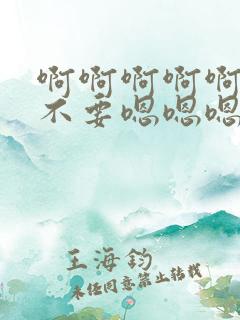 啊啊啊啊啊
不要嗯嗯嗯
王海钧
未经同意禁止转载